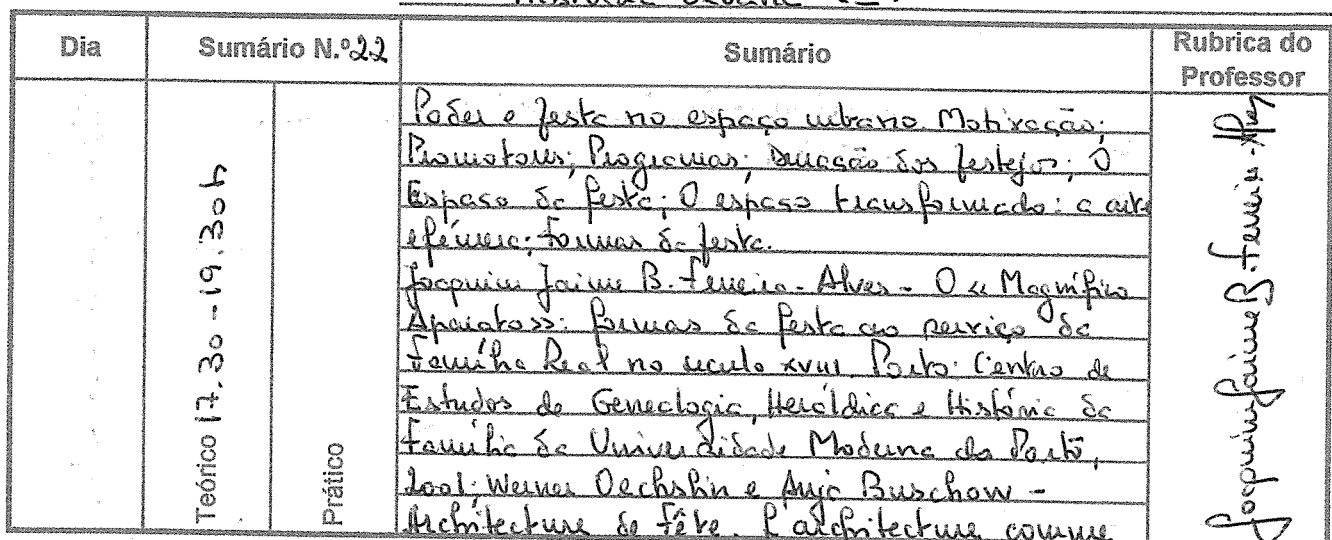 Dia
Sumário N.º 22
Sumário
Rubrica do
Professor
Teórico 17.30 - 19.30h
Prático
Poder e festa no espaço urbano Motivação;
Promotores; Programas; Duração dos festejos; O
Espaço da festa; O espaço transformado: a arte
efémera; formas da festa.
Joaquim Jaime B. Ferreira-Alves - O «Magnífico
Aparato»: formas da festa ao serviço da
Família Real no século XVIII. Porto: Centro de
Estudos de Genealogia, Heráldica e História da
Família da Universidade Moderna do Porto,
2001; Werner Oechslin e Anja Buschow -
Architecture de fête. L'architecture comme
Joaquim Jaime B. Ferreira-Alves